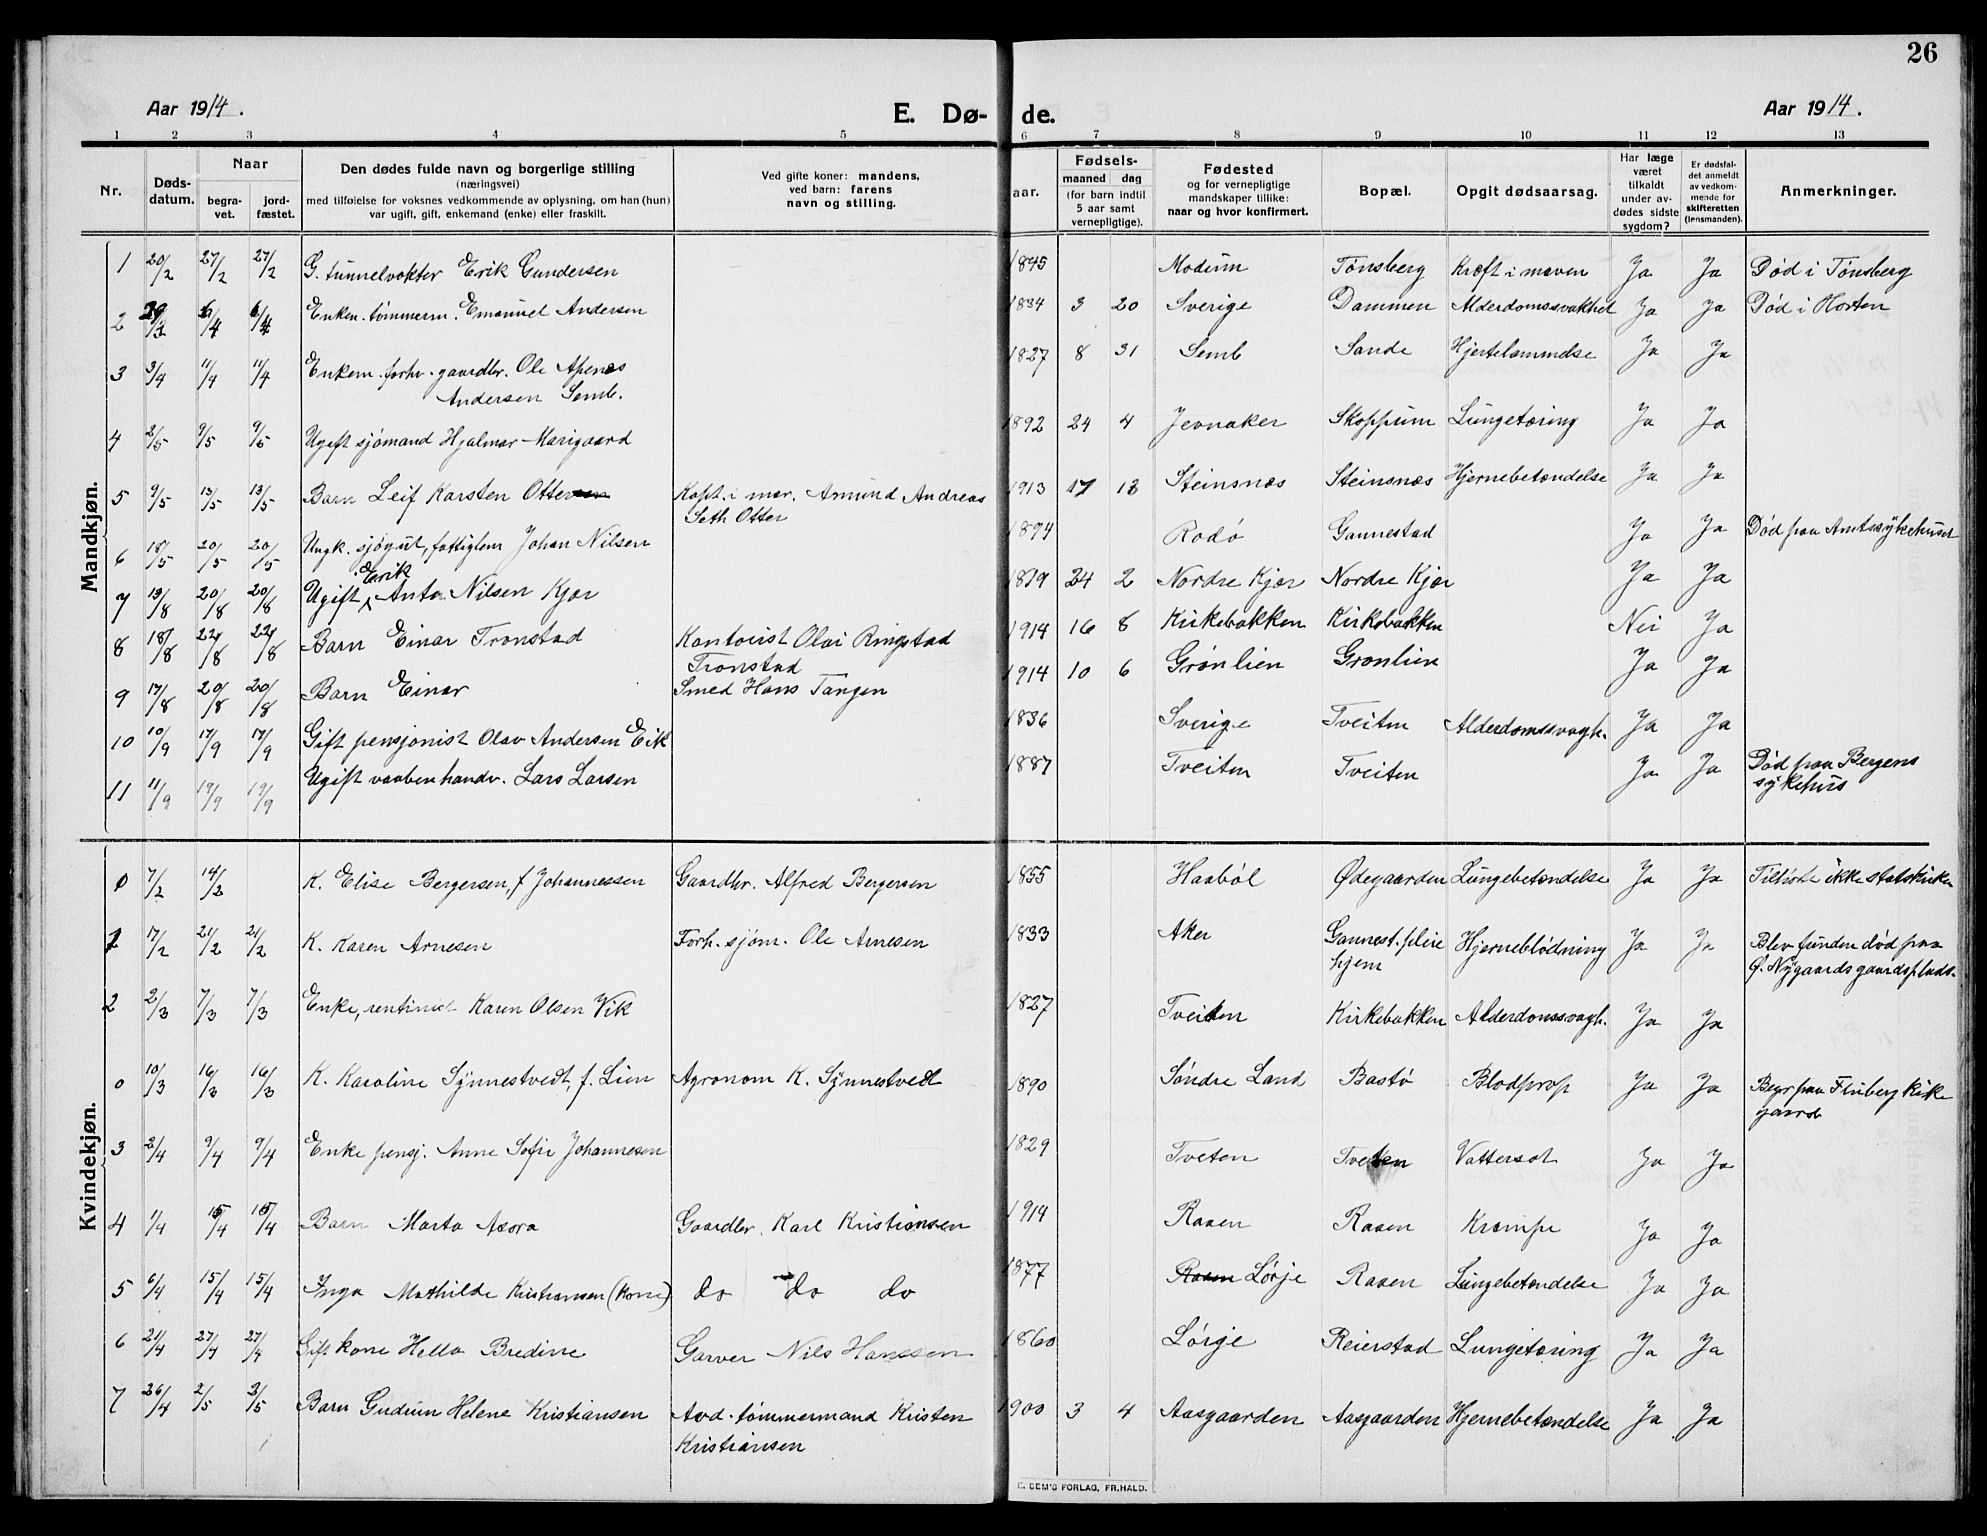 26
Aar 1914.
E. Døde.
Aar 1914.
1 2 3 4 5 6 7 8 9 10 11 12 13
Nr.
Døds-datum.
Naar
begra-vet.
jord-fæstet.
Den dødes fulde navn og borgerlige stilling
(næringsvei)
med tilføielse for voksnes vedkommende av oplysning, om han (hun)
var ugift, gift, enkemand (enke) eller fraskilt.
Ved gifte koner: mandens,
ved barn: farens
navn og stilling.
aar.
Fødsels-
maaned dag
(for barn indtil
5 aar samt
vernepligtige).
Fødested
og for vernepligtige
mandskaper tillike:
naar og hvor konfirmert.
Bopæl.
Opgit dødsaarsag.
Har læge
været
tilkaldt
under av-
dødes sidste
sygdom?
Er dødsfal-
det anmeldt
av vedkom-
mende for
skifteretten
(lensmanden).
Anmerkninger.
Mandkjøn.
1 20/2 27/2 27/2 G. tunnelvokter Erik Gundersen 1845 Modum Tønsberg Kræft i maven Ja Ja Død i Tønsberg
2 6/4 6/4 Enkem. tømmerm. Emanuel Andersen 1834 3 20 Sverige Dammen Alderdomssvakhet Ja Ja Død i Horten
3 3/4 11/4 11/4 Enkem. forhv. gaardbr. Ole Apenæs
Andersen Semb. 1827 8 31 Semb Sande Hjertelammelse Ja Ja
4 2/5 9/5 9/5 Ugift sjømand Hjalmar Marigaard 1892 24 4 Jevnaker Skoppum Lungetæring Ja Ja
5 9/5 13/5 13/5 Barn Leif Karsten Ottersen Kapt. i mar. Amund Andreas
Seth Otter 1913 17 12 Steinsnæs Steinsnæs Hjernebetændelse Ja Ja
6 18/5 20/5 20/5 Ungk. sjøgut, fattiglem Johan Nilsen 1894 Rodø Gannestad Ja Ja Død paa Amtssykehuset
7 13/8 20/8 20/8 Ugift Erik Anto Nilsen Kjær 1819 24 2 Nordre Kjær Nordre Kjær Ja Ja
8 18/8 22/8 22/8 Barn Einar Tronstad Kontorist Olai Ringstad
Tronstad 1914 16 8 Kirkebakken Kirkebakken Nei Ja
9 17/8 20/8 20/8 Barn Einar Smed Hans Tangen 1914 10 6 Grønlien Grønlien Ja Ja
10 10/9 17/9 17/9 Gift pensjonist Olav Andersen Eik 1836 Sverige Tveiten Alderdomssvagh. Ja Ja
11 11/9 19/9 19/9 Ugift vaabenhandv. Lars Larsen 1887 Tveiten Tveiten Ja Ja Død paa Bergens
sykehus
Kvindekjøn.
0 7/2 14/2 K. Elise Bergersen, f Johannessen Gaardbr. Alfred Bergersen 1855 Haabøl Ødegaarden Lungebetændelse Ja Ja Tilhørte ikke statskirken
1 17/2 21/2 21/2 K. Karen Arnesen Forh. sjøm. Ole Arnesen 1833 Aker Gannest. pleie
hjem Hjerneblødning Ja Ja Blev funden død paa
Ø. Nygaards gaardsplads.
2 2/3 7/3 7/3 Enke, rentinist Karen Olsen Vik 1827 Tveiten Kirkebakken Alderdomssvagh. Ja Ja
0 10/3 16/3 16/3 K. Karoline Synnestvedt, f. Lien Agronom K. Synnestvedt 1890 Søndre Land Bastø Blodprop Ja Ja Begr. paa Fluberg kirke
gaard
3 2/4 9/4 9/4 Enke pensj. Anne Sofie Johannesen 1829 Tveten Tveten Vattersot Ja Ja
4 1/4 15/4 15/4 Barn Marta Asora Gaardbr. Karl Kristiansen 1914 Raaen Raaen Krampe Ja Ja
5 6/4 15/4 15/4 Inga Mathilde Kristiansen (kone) do do do 1877 Raaen Lørje Raaen Lungebetændelse Ja Ja
6 21/4 27/4 27/4 Gift kone Hella Bredine Garver Nils Hanssen 1860 Lørje Reierstad Lungetæring Ja Ja
7 26/4 2/5 3/5 Barn Gudrun Helene Kristiansen Avd. tømmermand Kristen
Kristiansen 1900 3 4 Aasgaarden Aasgaarden Hjernebetændelse Ja Ja
SEM'S FORLAG, FR.HALD.